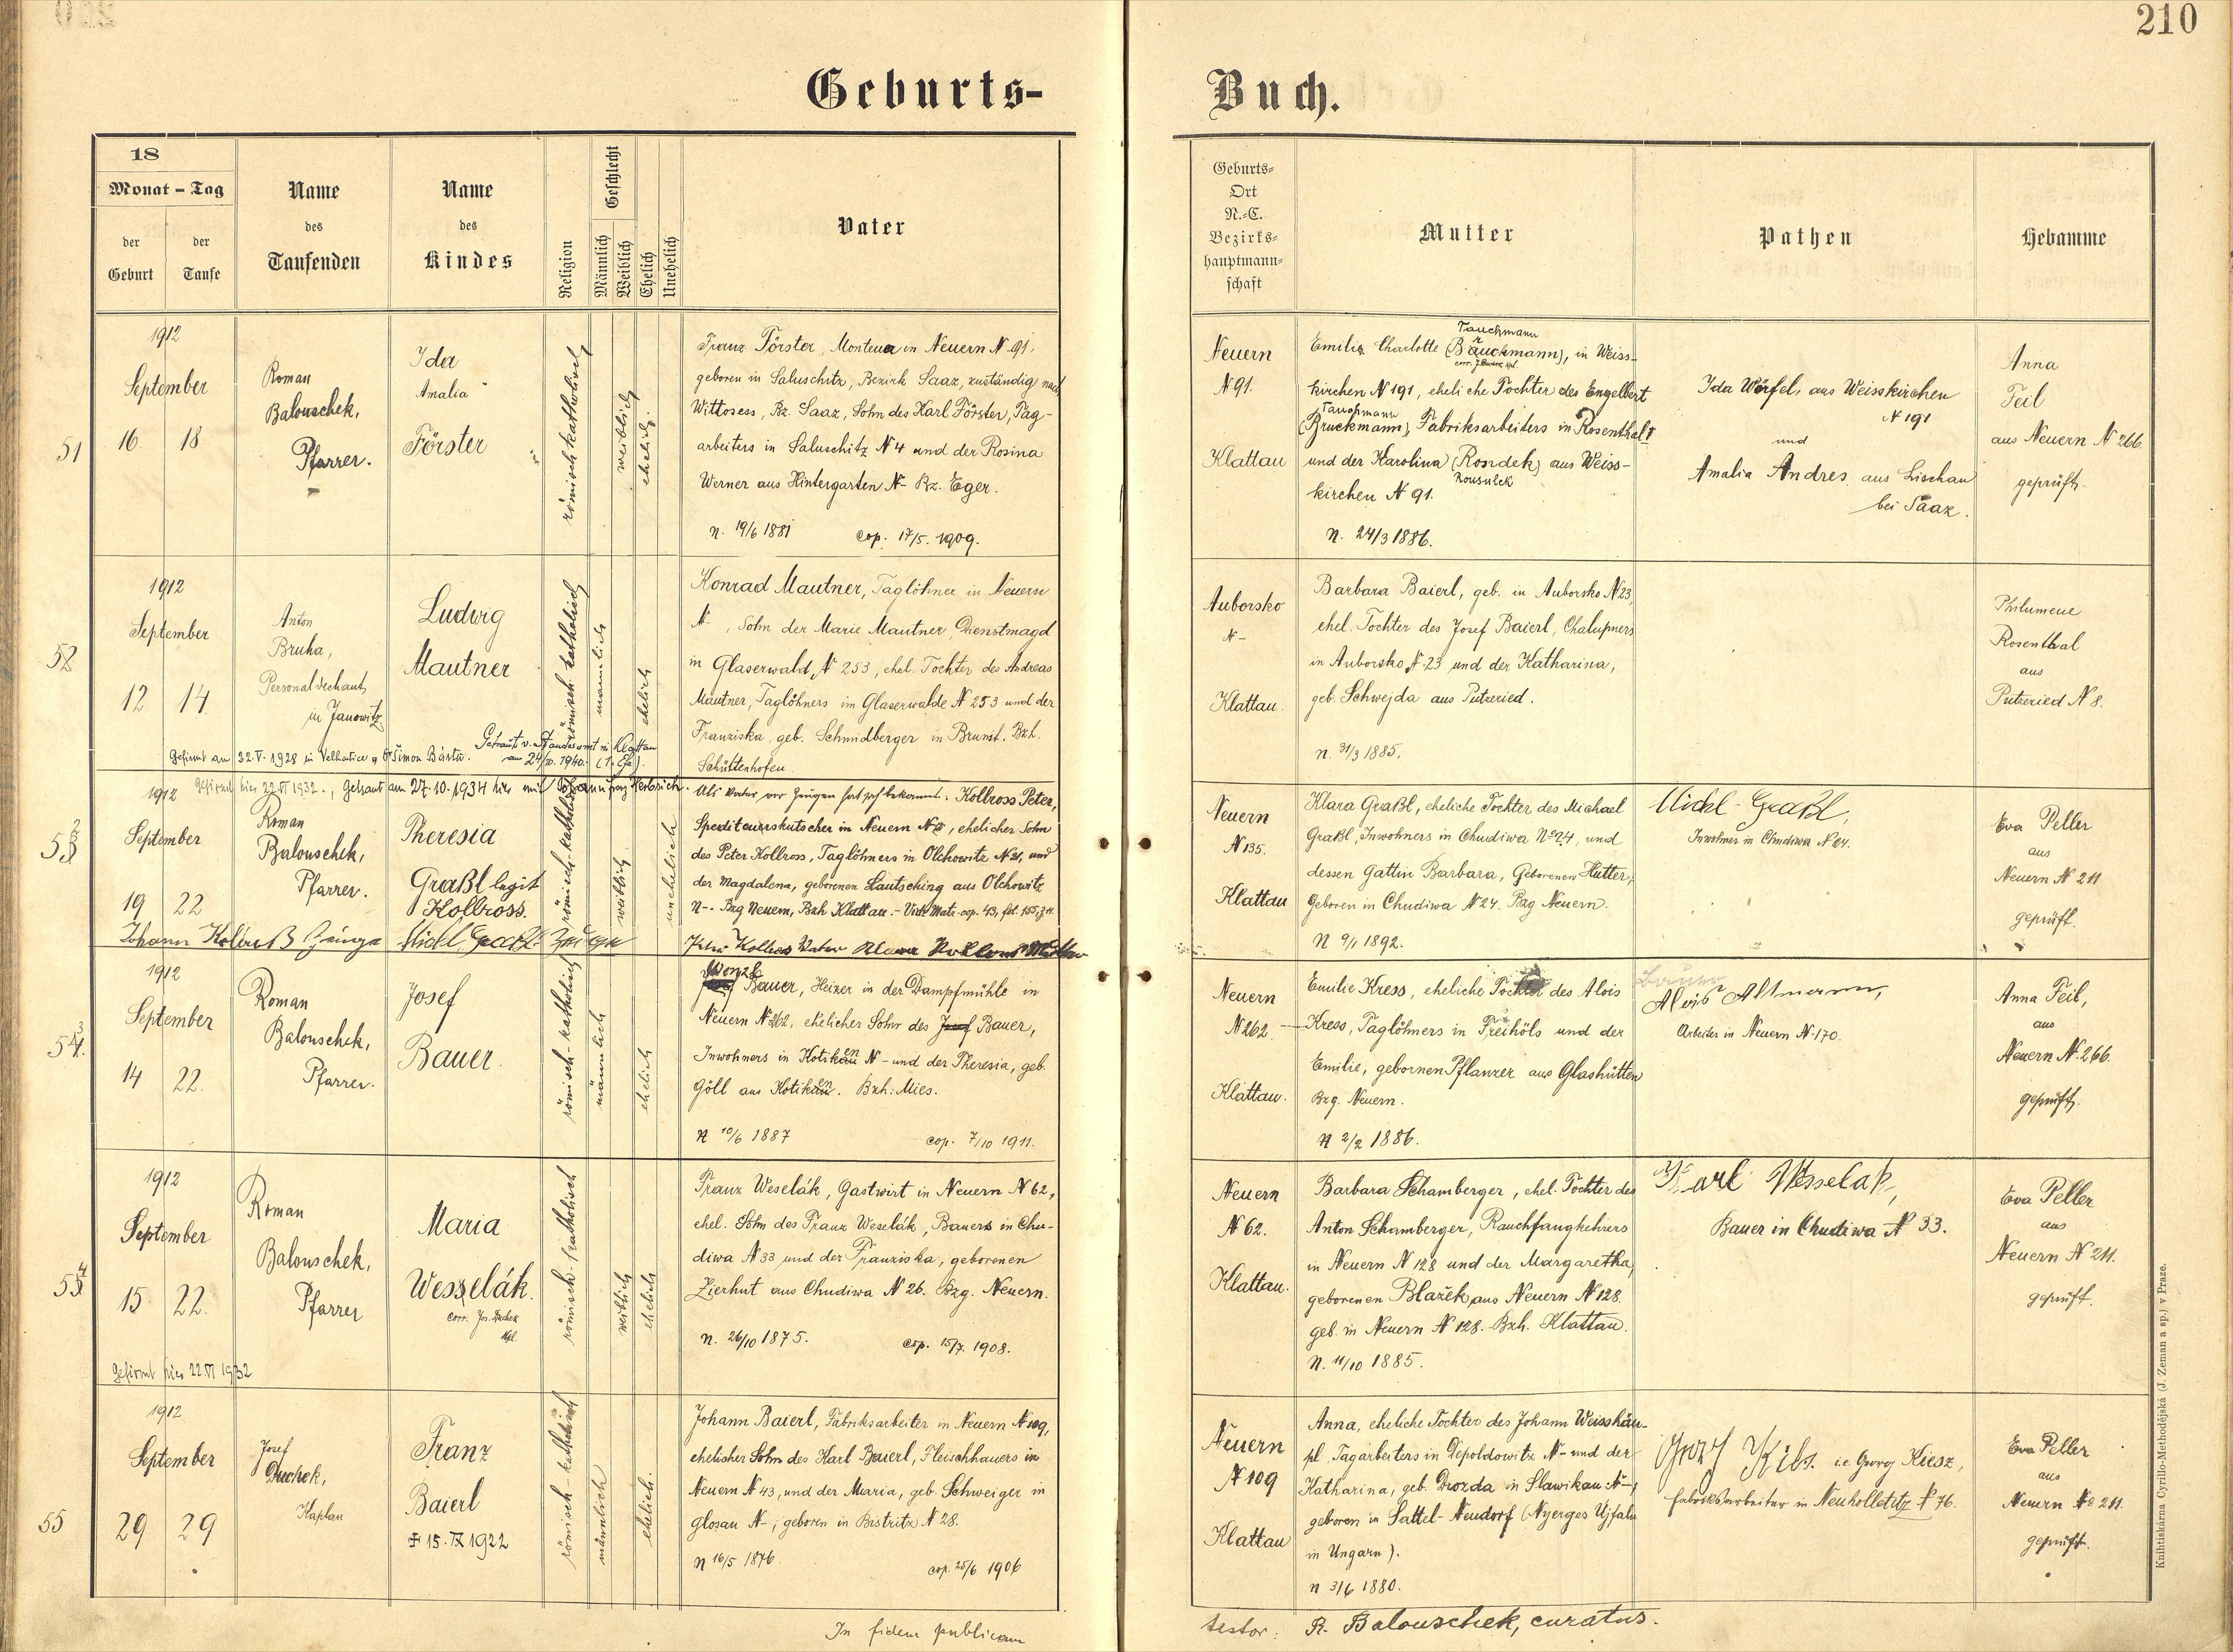 210
Geburts-
Buch.
18
Monat - Tag
der
Geburt
der
Taufe
Name
des
Taufenden
Name
des
Kindes
Religion
Geschlecht
Männlich
Weiblich
Ehelich
Unehelich
Vater
Geburts-
Ort
N.-C.
Bezirks-
hauptmann-
schaft
Mutter
Pathen
Hebamme
51
1912
September
16. 18
Roman
Balouschek,
Pfarrer.
Ida
Amalia
Förster
römisch katholisch
weiblich
ehelich.
Franz Förster, Monteur in Neuern N 91,
geboren in Saluschitz, Bezirk Saaz, zuständig nach
Wittosess, Bz. Saaz, Sohn des Karl Förster, Tag-
arbeiters in Saluschitz N 4 und der Rosina
Werner aus Hintergarten N- Bz. Eger.
n. 19/6 1881 cop. 17/5. 1909.
Neuern
N 91.
Klattau
Tauchmann
Emilia Charlotte (Bauckmann), in Weiss-
kirchen N 191, eheliche Tochter des Engelbert
Tauchmann
(Bruckmann), Fabriksarbeiters in Rosenthal
und der Karolina (Rosndek) aus Weiss-
kirchen N 91.
n. 24/3 1886.
Ida Wörfel, aus Weisskirchen
N 191
und
Amalia Andres aus Lischau
bei Saaz.
Anna
Feil
aus Neuern N 266.
geprüft.
52
1912
September
12 14
Anton
Bruha,
Personaldechant
in Janowitz
Ludwig
Mautner
römisch-katholisch
männlich
ehelich
Gefirmt am 22.V.1928 in Velhartice v. Dr Šimon Bárta.
Getraut v. Standesamt in Klattau
am 24/10. 1940. (1. Ehe).
Konrad Mautner, Taglöhner in Neuern
N- , Sohn der Marie Mautner, Dienstmagd
in Glaserwald N 253, ehel. Tochter des Andreas
Mautner, Taglöhners im Glaserwalde N 253 und der
Franziska, geb. Schmidberger in Brunst. Bzh.
Schüttenhofen
Auborsko
N-
Klattau.
Barbara Baierl, geb. in Auborsko N 23,
ehel. Tochter des Josef Baierl, Chalupners
in Auborsko N 23 und der Katharina,
geb. Schwejda aus Putzeried.
n. 31/3 1885.
Philumene
Rosenthal
aus
Putzeried N 8.
53
1912
Gefirmt hier 22.VI 1932., Getraut am 27.10.1934 hier mit Johann Herbrich.
September
19 22
Roman
Balouschek,
Pfarrer.
Theresia
Graßl legit
Kollross.
römisch-katholisch
weiblich
unehelich
Als Vater vor Zeugen hat sich bekannt: Kollross Peter,
Spediteurskutscher in Neuern N, ehelicher Sohn
des Peter Kollross, Taglöhners in Olchowitz N 21, und
der Magdalena, geborenen Lautsching aus Olchowitz
N-. Bzg Neuern, Bzh Klattau.- Vide Matr. cop. 43, fol. 155,
Johann Kollroß Zeuge Michl Graßl Zeuge Peter Kollross Vater Klara Kollross Mutter
Neuern
N 135.
Klattau
Klara Graßl, eheliche Tochter des Michael
Graßl, Inwohners in Chudiwa No 24, und
dessen Gattin Barbara, Geborenen Hutter,
Geboren in Chudiwa N 24. Bzg Neuern.
N 9/1 1892.
Michl Graßl,
Inwohner in Chudiwa N 24.
Eva Peller
aus
Neuern N 211
geprüft.
54
1912
September
14 22.
Roman
Balouschek,
Pfarrer.
Josef
Bauer.
römisch-katholisch
männlich
ehelich
Wenzl
Bauer, Heizer in der Dampfmühle in
Neuern N 262, ehelicher Sohn des Josef Bauer,
Inwohners in Kotiken N- und der Theresia, geb.
Göll aus Kotiken. Bzh: Mies.
N 10/6 1887 cop. 7/10 1911.
Neuern
N 262
Klattau.
Emilie Kress, eheliche Tochter des Alois
Kress, Taglöhners in Freihöls und der
Emilie, gebornen Pflanzer aus Glashütten
Bzg. Neuern.
N 2/2 1886.
Alois Altmann,
Arbeiter in Neuern N 170.
Anna Feil,
aus
Neuern N. 266.
geprüft.
55
1912
September
15 22.
Roman
Balouschek,
Pfarrer
Maria
Wesselák.
corr. Jos. Duchek
Kpl.
römisch-katholisch
weiblich
ehelich
Gefirmt hier 22.VI 1932
Franz Weselák, Gastwirt in Neuern N 62,
ehel. Sohn des Franz Weselák, Bauers in Chu-
diwa N 33 und der Franziska, geborenen
Zierhut aus Chudiwa N 26. Bzg. Neuern.
n. 26/10 1875. cop. 15/7. 1908.
Neuern
N 62.
Klattau.
Barbara Schamberger, ehel. Tochter des
Anton Schamberger, Rauchfangkehrers
in Neuern N 128 und der Margaretha,
geborenen Blažek aus Neuern N 128.
geb. in Neuern N 128. Bzh. Klattau.
N. 11/10 1885.
Karl Wesselak,
Bauer in Chudiwa N 33.
Eva Peller
aus
Neuern N 211.
geprüft.
55
1912
September
29 29
Josef
Duchek,
Kaplan
Franz
Baierl
✝ 15. IX 1922
römisch-katholisch
männlich
ehelich.
Johann Baierl, Fabriksarbeiter in Neuern N 109,
ehelicher Sohn des Karl Baierl, Fleischhauers in
Neuern N 43, und der Maria, geb. Schweiger in
Glosau N-; geboren in Bistritz N 28.
N 16/5 1876. cop. 25/6 1906
Neuern
N 109
Klattau
Anna, eheliche Tochter des Johann Weisshäu-
pl, Tagarbeiters in Depoldowitz N- und der
Katharina, geb. Drozda in Slawikau N-;
geboren in Sattel-Neudorf (Nyerges Ujfalu
in Ungarn).
n 3/6 1880.
i.e. Georg Kiesz,
Fabriksarbeiter in Neuholletitz N 76.
Eva Peller
aus
Neuern No 211.
geprüft.
In fidem publicam
testor: R. Balouschek, curatus.
Knihtiskárna Cyrillo-Methodějská (J. Zeman a sp.) v Praze.